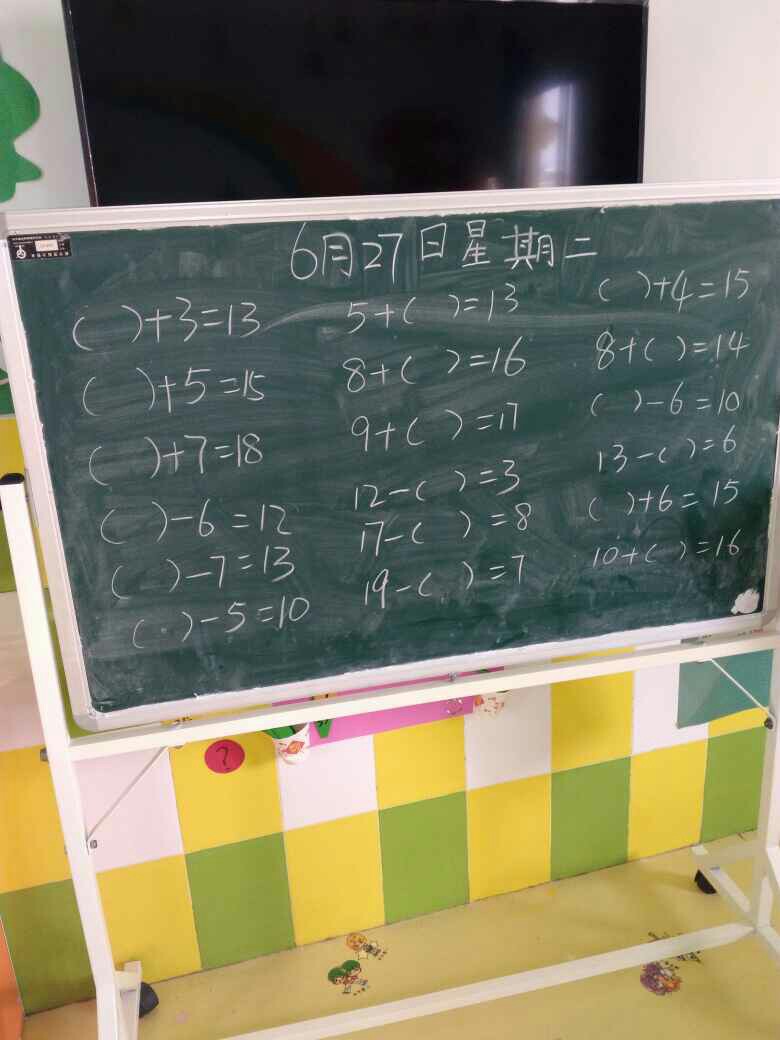 6月27日星期二
( )+3=13
( )+5=15
( )+7=18
( )-6=12
( )-7=13
( )-5=10
5+( )=13
8+( )=16
9+( )=17
12-( )=3
17-( )=8
19-( )=7
( )+4=15
8+( )=14
( )-6=10
13-( )=6
( )+6=15
10+( )=16
?